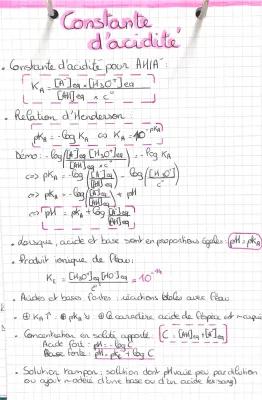 Constante
d'acidité
. Constante d'acidité pour AH/A⁻:
K_A = [A⁻]eq × [H₃O⁺]eq / [AH]eq × c°
. Relation d'Henderson:
pK_A = -log K_A ⇔ K_A = 10^-pK_A
Démo: -log([A⁻]eq [H₃O⁺]eq / [AH]eq × c°) = -log K_A
⇔ pK_A = -log([A⁻]eq / [AH]eq) - log([H₃O⁺] / c°)
⇔ pK_A = -log([A⁻]eq / [AH]eq) + pH
⇔ pH = pK_A + log [A⁻]eq / [AH]eq
. Lorsque, acide et base sont en proportions égales: pH = pK_A
. Produit ionique de l'eau:
K_e = [H₃O⁺]eq [HO⁻]eq / = 10⁻¹⁴
. Acides et bases fortes: réactions totales avec l'eau
. ⊕ K_A ↑ ⊕ pK_A ↘ ⊕ le caractère acide de l'espèce est marqué
. Concentration en soluté apporté: C = [AH]eq + [A⁻]eq
Acide fort: pH = -log C
Base forte: pH = pKe + log C
. Solution tampon: solution dont pH varie peu par dilution
ou ajout modéré d'une base ou d'un acide (ex: sang)